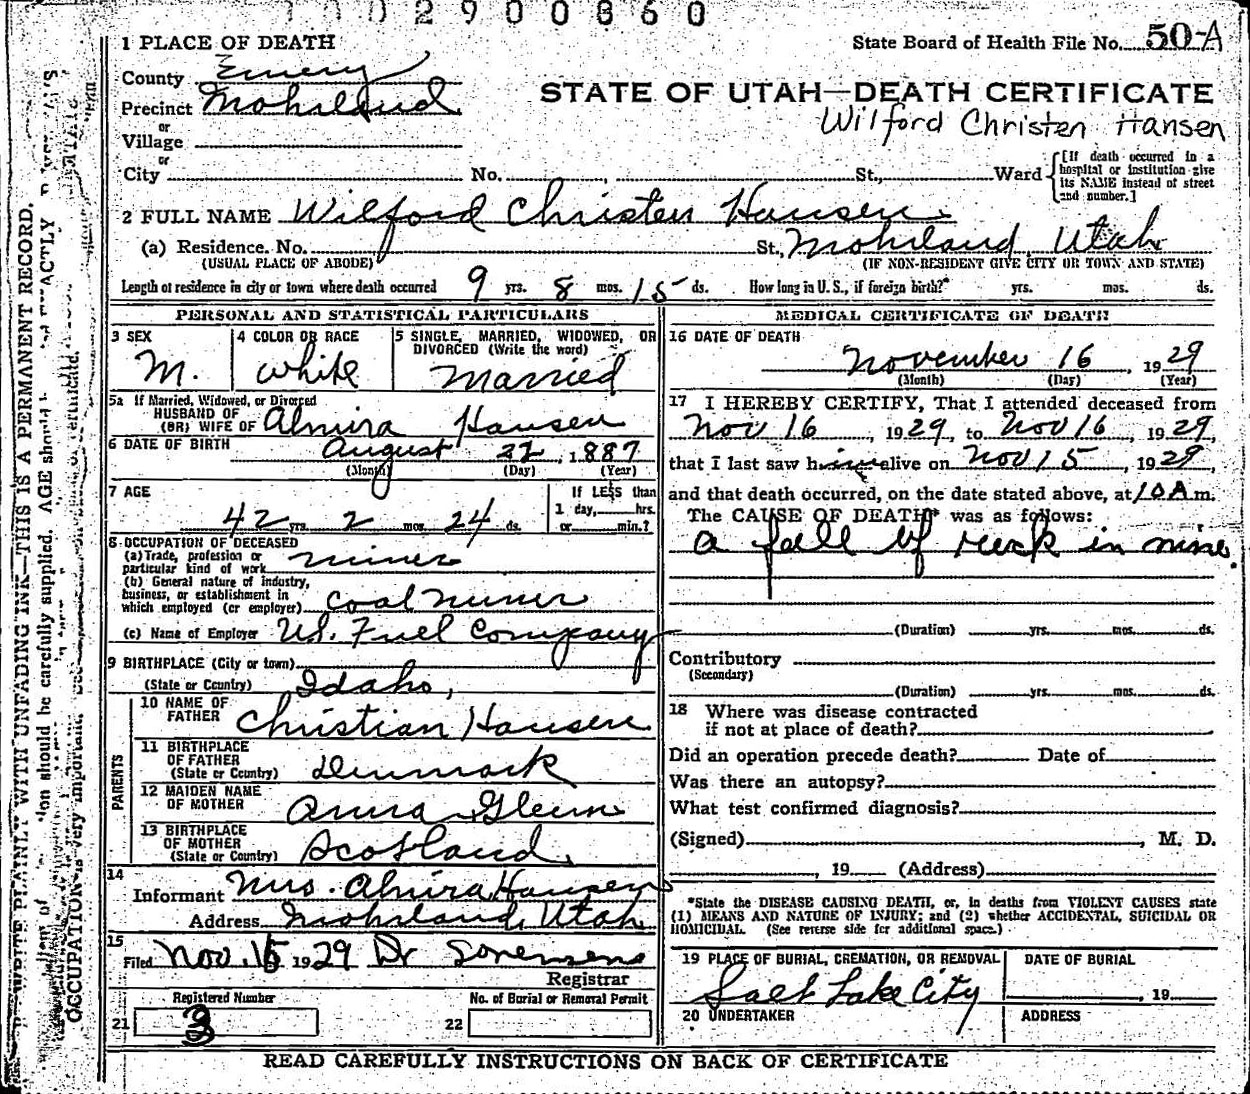 1 0 0 2 9 0 0 0 8 6 0
1 PLACE OF DEATH
State Board of Health File No. 50-A
County Emery
STATE OF UTAH—DEATH CERTIFICATE
Precinct Mohrland
Wilford Christen Hansen
or
Village
or
City No. , St., Ward
[If death occurred in a hospital or institution give its NAME instead of street and number.]
2 FULL NAME Wilford Christen Hansen
(a) Residence. No. St., Mohrland, Utah
(USUAL PLACE OF ABODE) (IF NON-RESIDENT GIVE CITY OR TOWN AND STATE)
Length of residence in city or town where death occurred 9 yrs. 8 mos. 15 ds. How long in U. S., if foreign birth? yrs. mos. ds.
PERSONAL AND STATISTICAL PARTICULARS
3 SEX
M.
4 COLOR OR RACE
White
5 SINGLE, MARRIED, WIDOWED, OR DIVORCED (Write the word)
Married
5a If Married, Widowed, or Divorced
HUSBAND OF
(OR) WIFE OF Almira Hansen
6 DATE OF BIRTH August 22, 1887
(Month) (Day) (Year)
7 AGE
42 yrs. 2 mos. 24 ds.
If LESS than
1 day, hrs.
or min.?
8 OCCUPATION OF DECEASED
(a) Trade, profession or
particular kind of work miner
(b) General nature of industry,
business, or establishment in
which employed (or employer) coal miner
(c) Name of Employer U.S. Fuel Company
9 BIRTHPLACE (City or town)
(State or Country) Idaho,
PARENTS
10 NAME OF
FATHER Christian Hansen
11 BIRTHPLACE
OF FATHER
(State or Country) Denmark
12 MAIDEN NAME
OF MOTHER Anna Glenn
13 BIRTHPLACE
OF MOTHER
(State or Country) Scotland
14
Informant Mrs. Almira Hansen
Address Mohrland, Utah
15
Filed Nov. 16 1929 Dr Sorensens
Registrar
Registered Number
21 3
No. of Burial or Removal Permit
22
MEDICAL CERTIFICATE OF DEATH
16 DATE OF DEATH
November 16, 1929
(Month) (Day) (Year)
17 I HEREBY CERTIFY, That I attended deceased from
Nov 16, 1929, to Nov 16, 1929,
that I last saw him alive on Nov 15, 1929,
and that death occurred, on the date stated above, at 10 A m.
The CAUSE OF DEATH* was as follows:
a fall of rock in mine.
(Duration) yrs. mos. ds.
Contributory
(Secondary)
(Duration) yrs. mos. ds.
18 Where was disease contracted
if not at place of death?
Did an operation precede death? Date of
Was there an autopsy?
What test confirmed diagnosis?
(Signed) , M. D.
, 19 (Address)
*State the DISEASE CAUSING DEATH, or, in deaths from VIOLENT CAUSES state
(1) MEANS AND NATURE OF INJURY; and (2) whether ACCIDENTAL, SUICIDAL OR
HOMICIDAL. (See reverse side for additional space.)
19 PLACE OF BURIAL, CREMATION, OR REMOVAL
Salt Lake City
DATE OF BURIAL
, 19
20 UNDERTAKER
ADDRESS
READ CAREFULLY INSTRUCTIONS ON BACK OF CERTIFICATE
WRITE PLAINLY WITH UNFADING INK—THIS IS A PERMANENT RECORD.
should be carefully supplied. AGE should
OCCUPATION is very important.